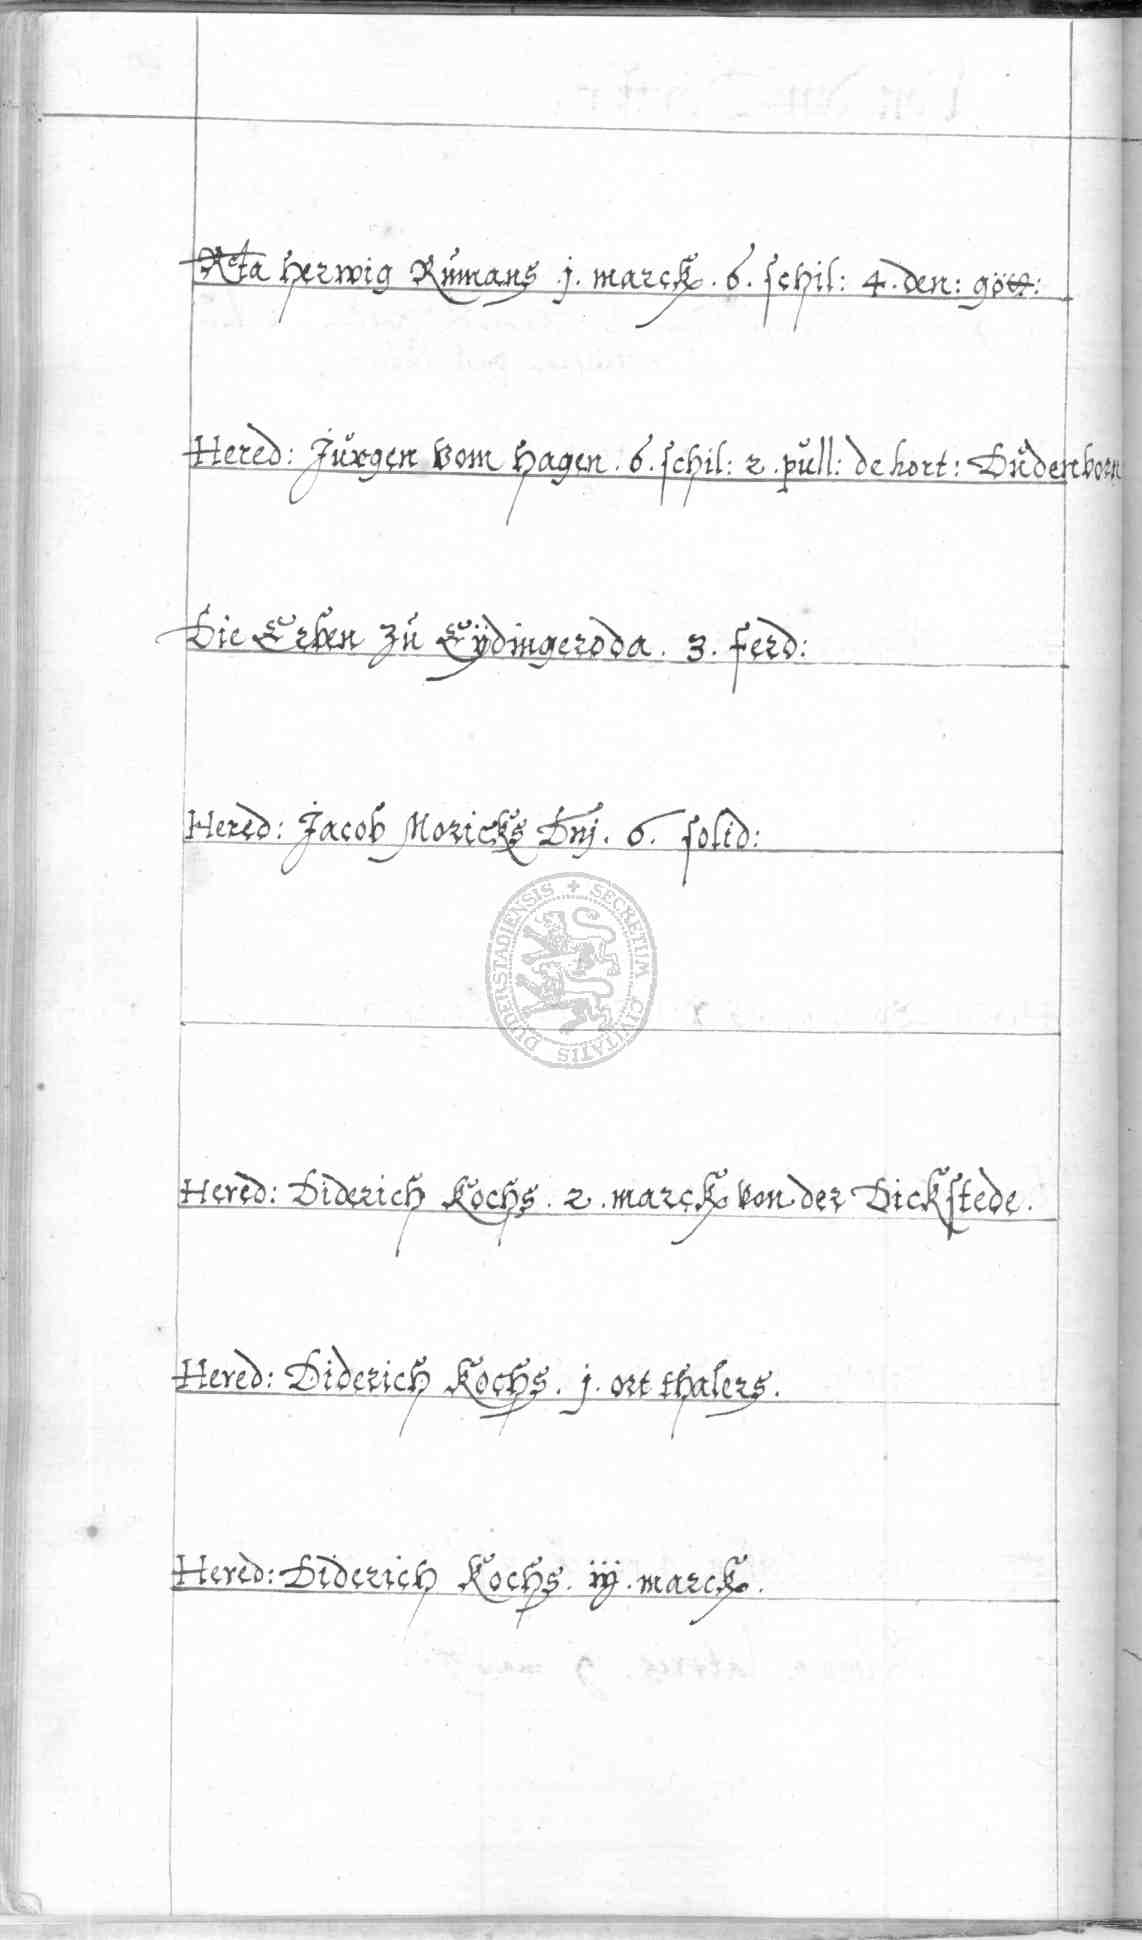 Rta herwig Rumans j. marck. 6. schil: 4. den: gött:
Hered: Jurgen vom Hagen. 6. schil: 2. pull: de hort: Dudenborn
Die Erben zu Eÿdingeroda. 3. ferd:
Hered: Jacob Moricks Dnj. 6. solid:
DUDERSTADIENSIS + SECRETUM CIVITATIS
Hered: Diderich Kochs. 2. marck von der Dickstede.
Hered: Diderich Kochs. j. ort thalers.
Hered: Diderich Kochs. iij. marck.